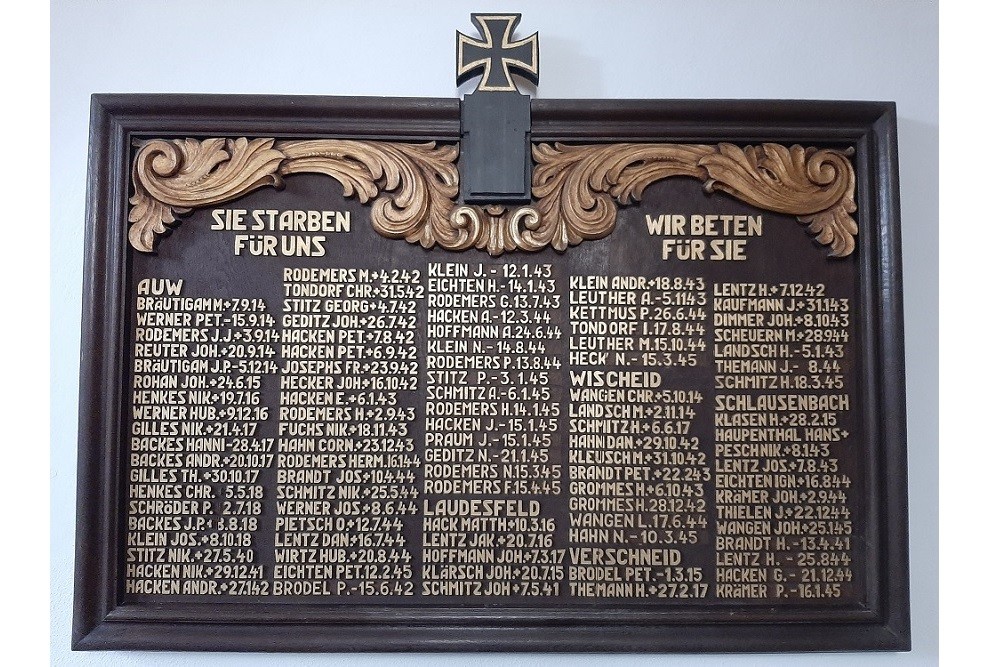 SIE STARBEN
FÜR UNS
WIR BETEN
FÜR SIE
AUW
BRÄUTIGAM M.+7.9.14
WERNER PET.-15.9.14
RODEMERS J.J.+3.9.14
REUTER JOH.+20.9.14
BRÄUTIGAM J.P.-5.12.14
ROHAN JOH.+24.6.15
HENKES NIK.+19.7.16
WERNER HUB.+9.12.16
GILLES NIK.+21.4.17
BACKES HANNI-28.4.17
BACKES ANDR.+20.10.17
GILLES TH.+30.10.17
HENKES CHR. 5.5.18
SCHRÖDER P. 2.7.18
BACKES J.P. 8.8.18
KLEIN JOS.+8.10.18
STITZ NIK.+27.5.40
HACKEN NIK.+29.12.41
HACKEN ANDR.+27.1.42
RODEMERS M.+4.2.42
TONDORF CHR.+31.5.42
STITZ GEORG+4.7.42
GEDITZ JOH.+26.7.42
HACKEN PET.+7.8.42
HACKEN PET.+6.9.42
JOSEPHS FR.+23.9.42
HECKER JOH+16.10.42
HACKEN E.+6.1.43
RODEMERS H.+2.9.43
FUCHS NIK.+18.11.43
HAHN CORN.+23.12.43
RODEMERS HERM.16.1.44
BRANDT JOS+10.4.44
SCHMITZ NIK.+25.5.44
WERNER JOS.+8.6.44
PIETSCH O.+12.7.44
LENTZ DAN.+16.7.44
WIRTZ HUB.+20.8.44
EICHTEN PET.12.2.45
BRODEL P.-15.6.42
KLEIN J. - 12.1.43
EICHTEN H.-14.1.43
RODEMERS G.13.7.43
HACKEN A.-12.3.44
HOFFMANN A.24.6.44
KLEIN N. - 14.8.44
RODEMERS P.13.8.44
STITZ P.-3.1.45
SCHMITZ A.-6.1.45
RODEMERS H.14.1.45
HACKEN J.-15.1.45
PRAUM J.-15.1.45
GEDITZ N.-21.1.45
RODEMERS N.15.3.45
RODEMERS F.15.4.45
LAUDESFELD
HACK MATTH.+10.3.16
LENTZ JAK.+20.7.16
HOFFMANN JOH+7.3.17
KLÄRSCH JOH.+20.7.15
SCHMITZ JOH+7.5.41
KLEIN ANDR.+18.8.43
LEUTHER A.-5.11.43
KETTMUS P.26.6.44
TONDORF I.17.8.44
LEUTHER M.15.10.44
HECK N.-15.3.45
WISCHEID
WANGEN CHR+5.10.14
LANDSCH M+2.11.14
SCHMITZ H.+6.6.17
HAHN DAN.+29.10.42
KLEUSCH M+31.10.42
BRANDT PET.+22.2.43
GROMMES H.+6.10.43
GROMMES H.28.12.42
WANGEN L.17.6.44
HAHN N.-10.3.45
VERSCHNEID
BRODEL PET.-1.3.15
THEMANN H.+27.2.17
LENTZ H.+7.12.42
KAUFMANN J.+31.1.43
DIMMER JOH.+8.10.43
SCHEUERN M+28.9.44
LANDSCH H.-5.1.43
THEMANN J.- 8.44
SCHMITZ H.18.3.45
SCHLAUSENBACH
KLASEN H.+28.2.15
HAUPENTHAL HANS+
PESCH NIK.+8.1.43
LENTZ JOS+7.8.43
EICHTEN IGN+16.8.44
KRÄMER JOH+2.9.44
THIELEN J.+22.12.44
WANGEN JOH+25.1.45
BRANDT H.-13.4.41
LENTZ H. - 25.8.44
HACKEN G.- 21.12.44
KRÄMER P.-16.1.45